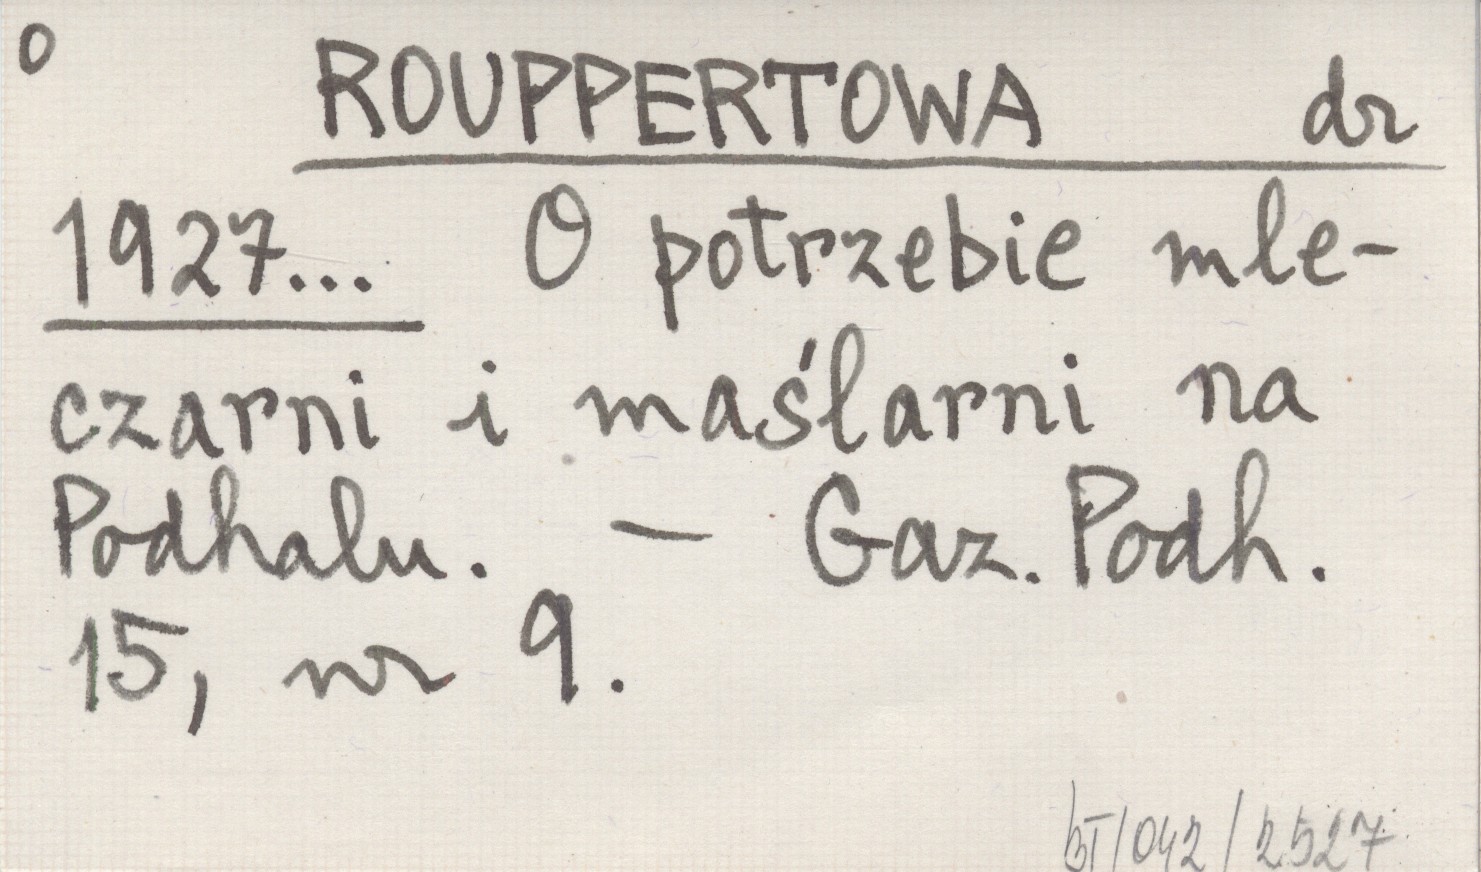 o
ROUPPERTOWA dr
1927... O potrzebie mle-
czarni i maślarni na
Podhalu. — Gaz. Podh.
15, nr 9.
/042/2527